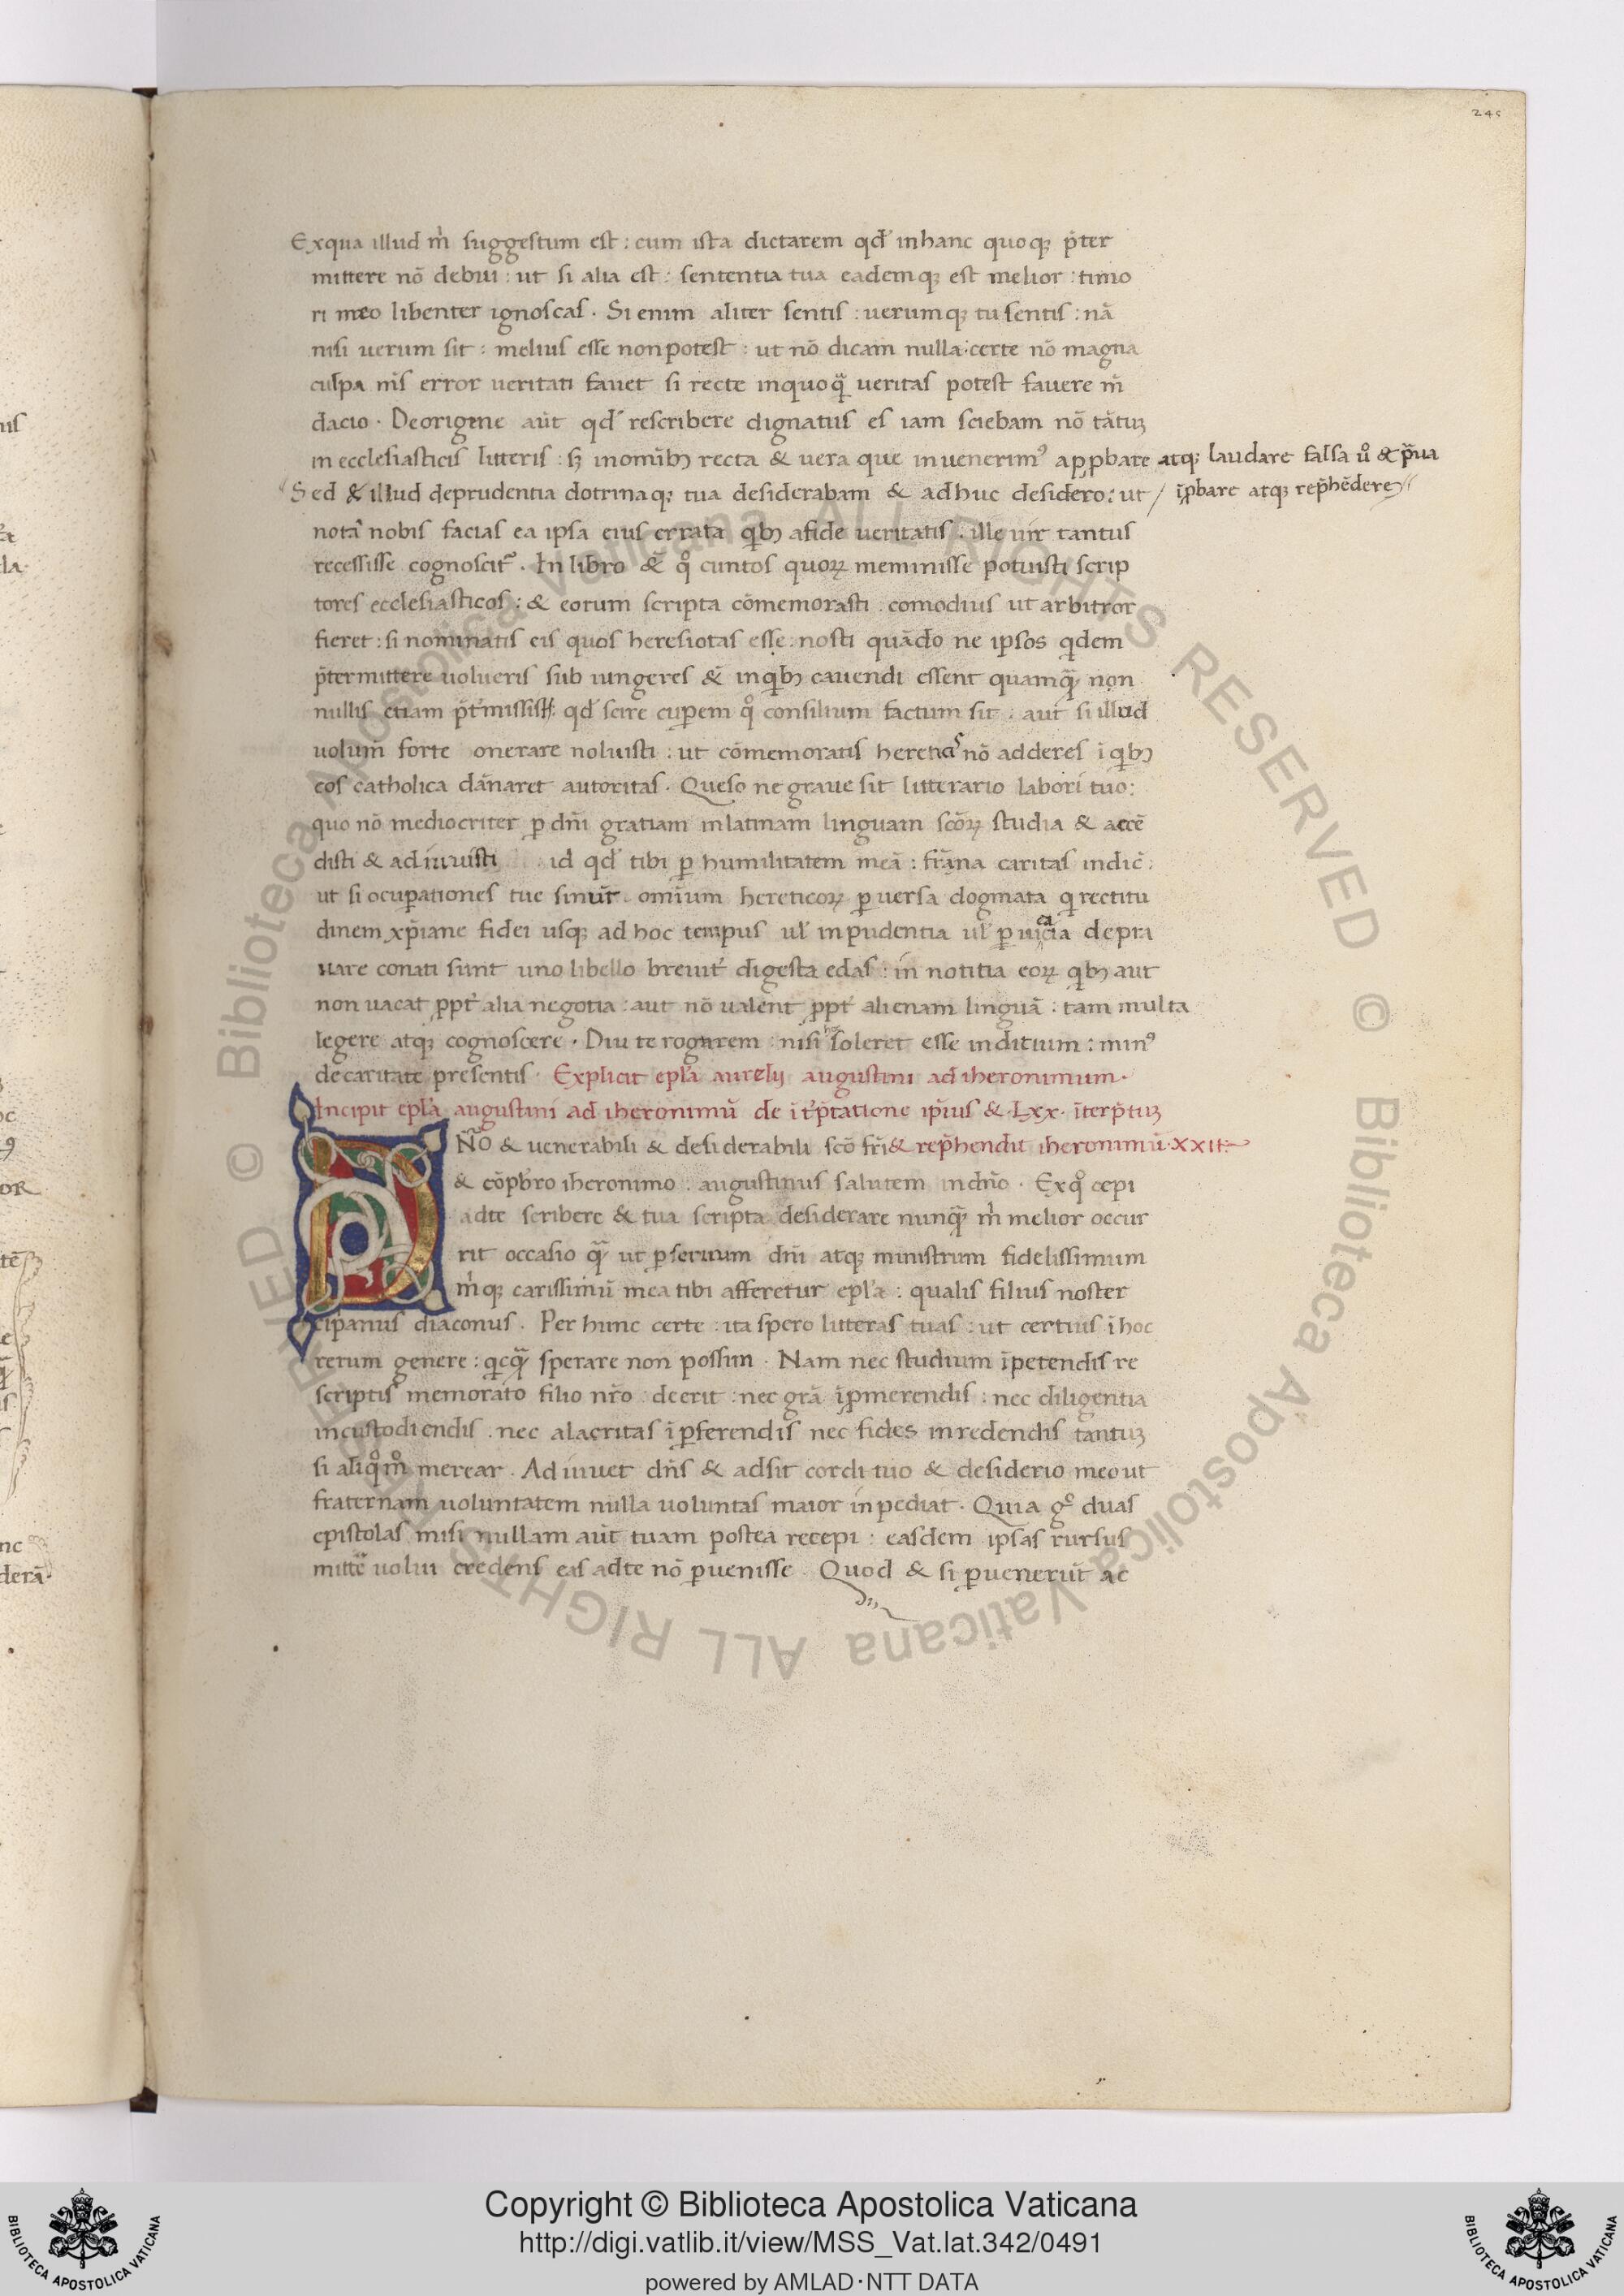 245
Exqua illud m̍ suggestum est : cum ista dictarem qđ inhanc quoqꝫ p̄ter
mittere nō debui : ut si alia est : sententia tua eademqꝫ est melior : timo
ri meo libenter ignoscas . Si enim aliter sentis : uerumqꝫ tu sentis : nā
nisi uerum sit : melius esse nonpotest : ut nō dicam nulla : certe nō magna
culpa m̄s error ueritati fauet si recte inquoqᷓ ueritas potest fauere m̄
dacio . Deorigene aūt qđ rescribere dignatus es iam sciebam nō tātuꝫ
in ecclesiasticis litteris : sꝫ inomībꝫ recta & uera que inuenerimꝰ appbare atqꝫ laudare falsa ů & p̄ua
Sed & illud deprudentia dotrinaqꝫ tua desiderabam & adhuc desidero : ut / īpbare atqꝫ rep̄hēdere
nota nobis facias ea ipsa eius errata qibꝫ afide ueritatis . ille uir tantus
recessisse cognoscit᷑ . In libro &̄ q̊ cuntos quoꝝ meminisse potuisti scrip
tores ecclesiasticos : & eorum scripta cōmemorasti . comodius ut arbitror
fieret : si nominatis eis quos heresiotas esse . nosti quādo ne ipsos qidem
p̄termittere uolueris sub iungeres &̄ inqibꝫ cauendi essent quamqᷓ non
nullis etiam p̄t̍missisti qđ scire cuperem q̊ consilium factum sit . aut si illud
uolum̄ forte onerare noluisti : ut cōmemoratis hereticis nō adderes ī qibꝫ
eos catholica dānaret autoritas . Queso ne graue sit litterario labori tuo :
quo nō mediocriter ꝑ dn̄i gratiam inlatinam linguam scōꝝ studia & accē
disti & adiuuisti id qđ tibi ꝑ humilitatem meā : fr̄ana caritas indic̄ :
ut si ocupationes tue sinūt . omīum hereticoꝝ ꝑuersa dogmata qi rectitu
dinem xp̄iane fidei usqꝫ ad hoc tempus ul̍ inpudentia ul̍ ꝑuicacia depra
uare conati sunt uno libello breuit̍ digesta edas : in notitia eoꝝ qibꝫ aut
non uacat ppt̍ alia negotia : aut nō ualent ppt̍ alienam linguā : tam multa
legere atqꝫ cognoscere . Diu te rogarem : nisi hoc soleret esse inditium : minꝰ
decaritate presentis . Explicit epl̍a aurelij augustini ad iheronimum .
Incipit epl̍a augustini ad iheronimū de īt̍p̄tatione ip̄ius & . Lxx . īterp̄tuꝫ
DN̄O & uenerabili & desiderabili scō fr̄i & rep̄hendit iheronimū . xxII .
& cōpb̄ro iheronimo : augustinus salutem indn̄o . Exq̊ cepi
adte scribere & tua scripta desiderare nunqᷓ m̍ melior occur
rit occasio qᷓ ut ꝑseruum dn̄i atqꝫ ministrum fidelissimum
m̍qꝫ carissimū mea tibi afferetur epl̍a : qualis filius noster
cip̄anus diaconus . Per hunc certe : ita spero litteras tuas : ut certius ī hoc
rerum genere : qicqᷓ sperare non possim . Nam nec studium īpetendis re
scriptis memorato filio nr̄o deerit : nec gr̄a īpmerendis : nec diligentia
incustodiendis . nec alacritas īꝑferendis nec fides inredendis tantuꝫ
si aliq̊m̊ merear . Adiuuet dn̄s & adsit cordi tuo & desiderio meo ut
fraternam uoluntatem nulla uoluntas maior inpediat . Quia g̊ duas
epistolas misi nullam aūt tuam postea recepi : easdem ipsas rursus
mittē uolui credens eas adte nō ꝑuenisse . Quod & si ꝑuenerūt ac
Copyright © Biblioteca Apostolica Vaticana
http://digi.vatlib.it/view/MSS_Vat.lat.342/0491
powered by AMLAD·NTT DATA
BIBLIOTECA APOSTOLICA VATICANA
BIBLIOTECA APOSTOLICA VATICANA
© Biblioteca Apostolica Vaticana ALL RIGHTS RESERVED © Biblioteca Apostolica Vaticana ALL RIGHTS RESERVED